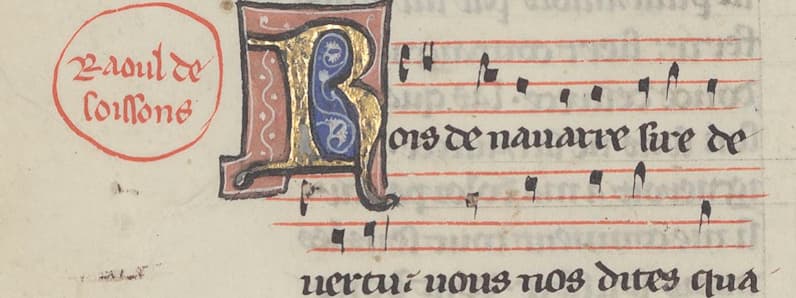 Raoul de
soissons
Rois de nauarre sire de
uertu: uous nos dites qua